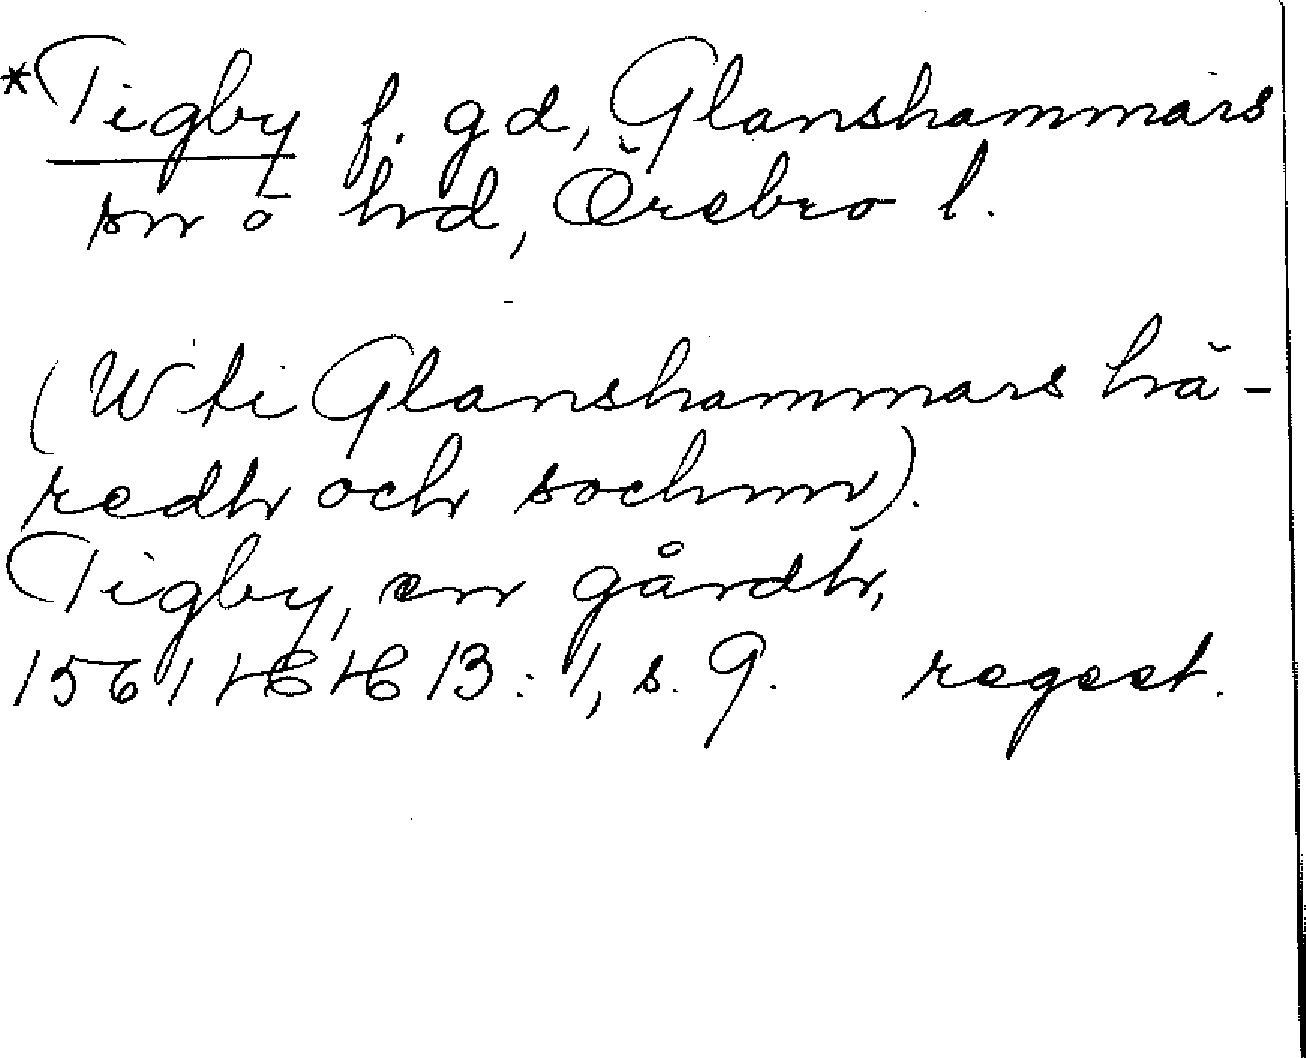 *Tigby f. gd, Glanshammars
sn o hd, Örebro l.
(W ti Glanshammars hä-
redh och sochnn).
Tigby, en gårdh,
1561 HH 13:1, s. 9. regest.